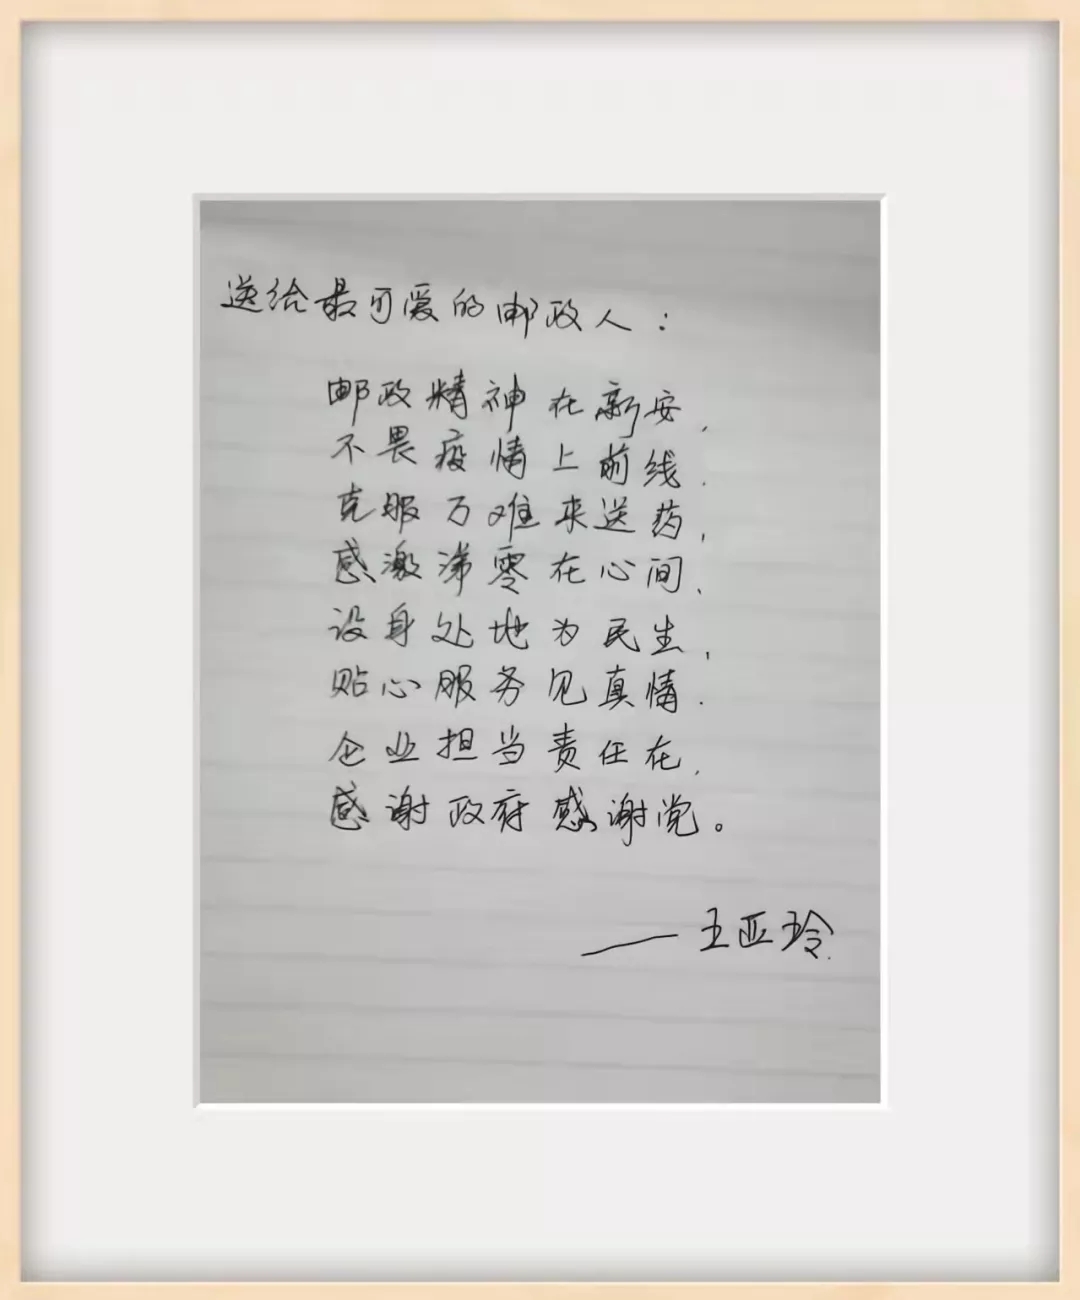 送给最可爱的邮政人：
邮政精神在新安，
不畏疫情上前线.
克服万难来送药，
感激涕零在心间，
设身处地为民生，
贴心服务见真情.
企业担当责任在，
感谢政府感谢党。
——王亚玲